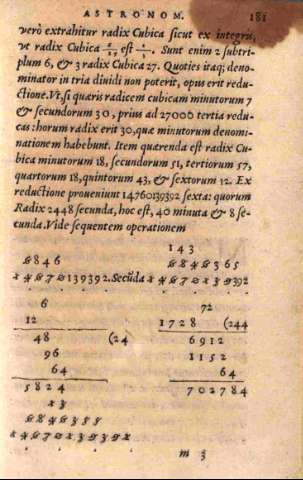 ASTRONOM. 181
verò extrahitur radix Cubica sicut ex integris,
vt radix Cubica 8/27 est 2/3. Sunt enim 2 subtri-
plum 6, & 3 radix Cubica 27. Quoties itaq; deno-
minator in tria diuidi non poterit, opus erit redu-
ctione. Vt, si quæris radicem cubicam minutorum 7
& secundorum 30, prius ad 27000 tertia redu-
cas: horum radix erit 30, quæ minutorum denomi-
nationem habebunt. Item quærenda est radix Cu-
bica minutorum 18, secundorum 51, tertiorum 57,
quartorum 18, quintorum 43, & sextorum 12. Ex
reductione proueniunt 14760139392 sexta: quorum
Radix 2448 secunda, hoc est, 40 minuta & 8 se-
cunda. Vide sequentem operationem
143
6846
139392. Secũda
392
6 72
12 1728 (244
48 (24 6912
96 1152
64 64
5824 702784
m 3